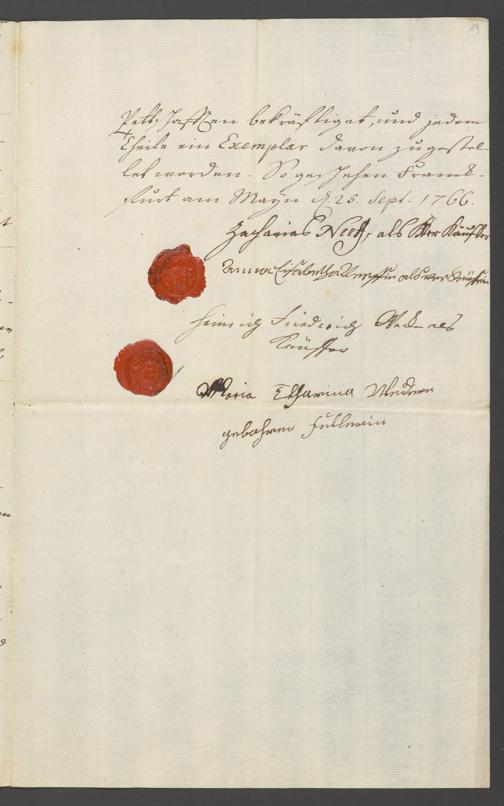 19
Pettschafften bekräfftiget, und jedem
Theile ein Exemplar davon zugestel-
let worden. So geschehen Franck-
furt am Mayn d. 25. Sept. 1766.
Zacharias Neeff, als Ver Käuffer
Anna Elisabetha Neeffin als ver Käuferin
Heinrich Friedrich als
Käuffer
Maria Catharina
gebohrne Füllerin